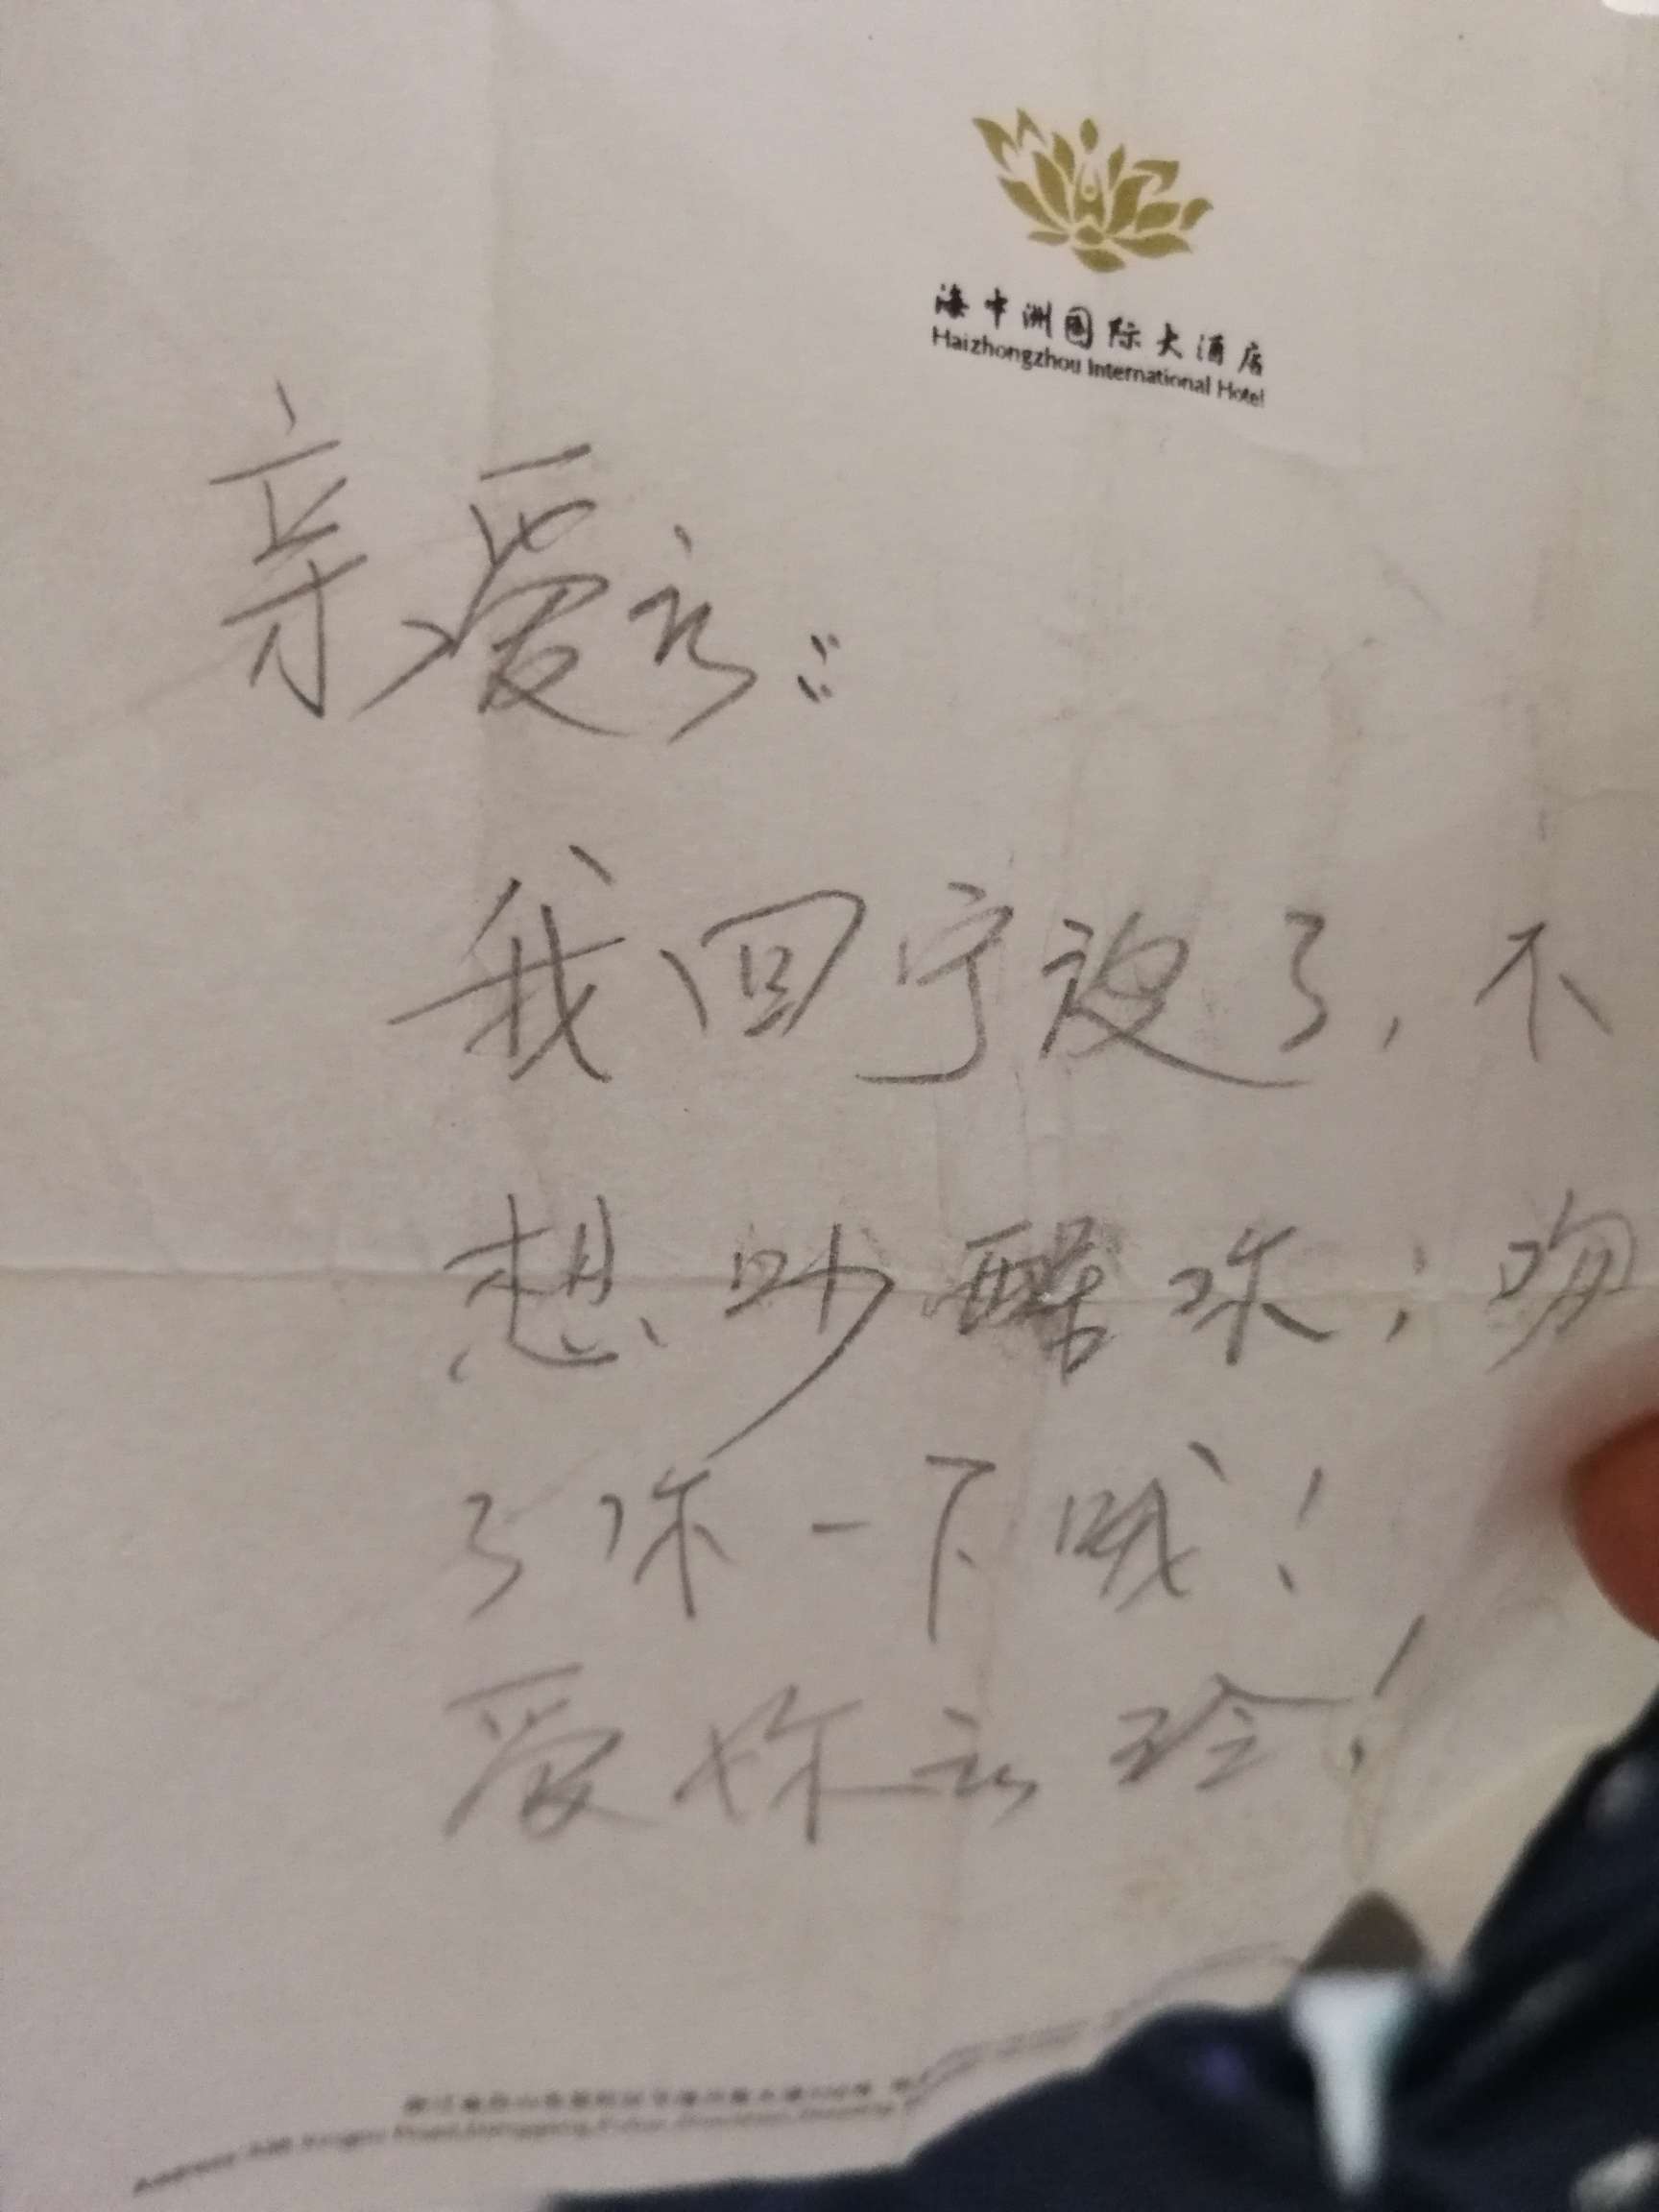 海中洲国际大酒店
Haizhongzhou International Hotel
亲爱的：
我回宁波了，不
想吵醒你；吻
了你一下哦！
爱你的玲！